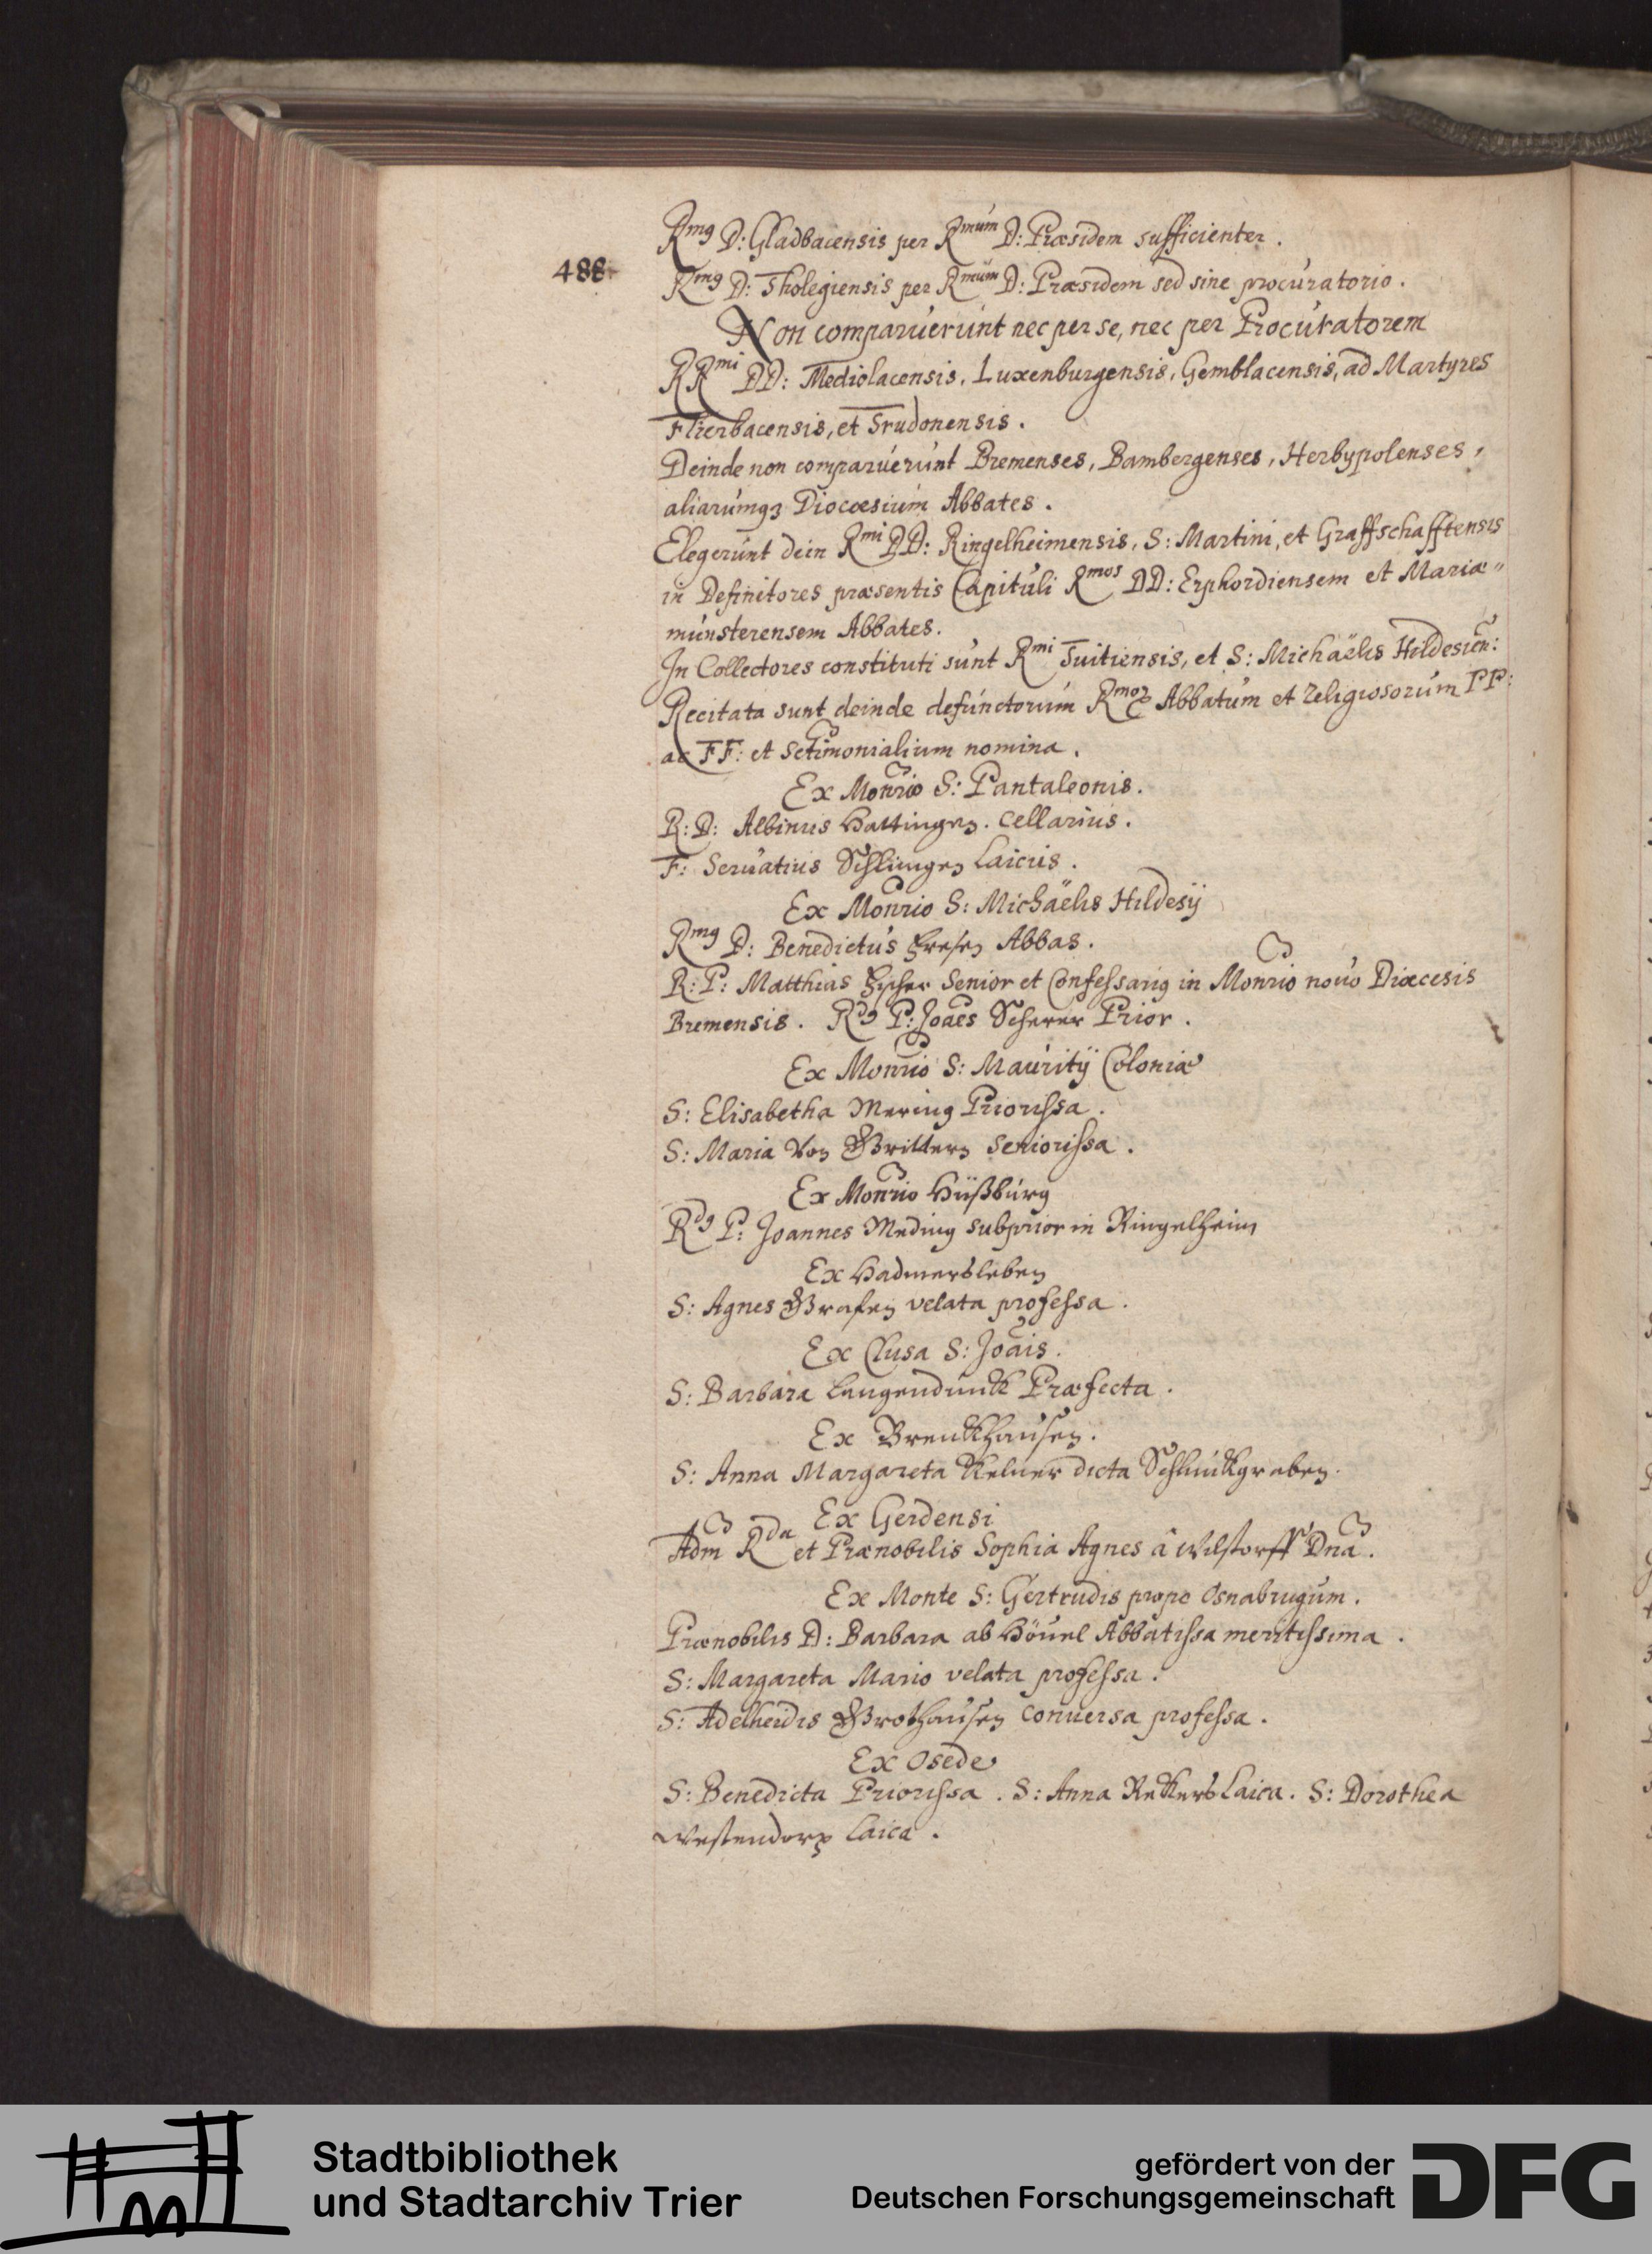 488.
Rmg D: Gladbacensis per Rmum D: Præsidem sufficienter.
Rmg D: Tholegiensis per Rmum D: Præsidem sed sine procuratorio.
Non comparuerunt nec per se, nec per Procuratorem
RRmi DD: Mediolacensis, Luxenburgensis, Gemblacensis, ad Martyres
Flierbacensis, et Trudonensis.
Deinde non comparuerunt Bremenses, Bambergenses, Herbypolenses,
aliarumqȝ Diocœsium Abbates.
Elegerunt dein Rmi DD: Ringelheimensis, S: Martini, et Graffschafftensis
in Definitores præsentis Capituli Rmos DD: Erphordiensem et Mariæ"
munsterensem Abbates.
In Collectores constituti sunt Rmi Tuitiensis, et S: Michaëlis Hildesien:
Recitata sunt deinde defunctorum Rmoꝝ Abbatum et religiosorum PP:
ac FF: et Sctimonialium nomina.
Ex Monrio S: Pantaleonis.
R: D: Albinus Hattingen. Cellarius.
F: Seruatius Schlungen Laicus.
Ex Monrio S: Michaëlis Hildesÿ
Rmg D: Benedictus Fresen Abbas.
R: P: Matthias Fischer Senior et Confessarig in Monrio nouo Diœcesis
Bremensis. Rdg P: Joaes Scherer Prior.
Ex Monrio S: Mauritÿ Coloniæ
S: Elisabetha Mering Priorissa.
S: Maria Von Brittern Seniorissa.
Ex Monrio Hüßburg
Rdg P: Joannes Meding subprior in Ringelheim
Ex Hadmersleben
S: Agnes Grafen velata professa.
Ex Clusa S: Joais.
S: Barbara Langendunck Præfecta.
Ex Brenckhausen.
S: Anna Margareta Kelner dicta Schlunckgraben.
Ex Gerdensi
Adm Rda et Prænobilis Sophia Agnes â Wilstorff Dna.
Ex Monte S: Gertrudis prope Osnabrugum.
Prænobilis D: Barbara ab Höuel Abbatissa meritissima.
S: Margareta Mario velata professa.
S: Adelheidis Grothausen conuersa professa.
Ex Osede
S: Benedicta Priorissa. S: Anna Reckers Laica. S: Dorothea
Westendorp Laica.
Stadtbibliothek
und Stadtarchiv Trier
gefördert von der
Deutschen Forschungsgemeinschaft
DFG